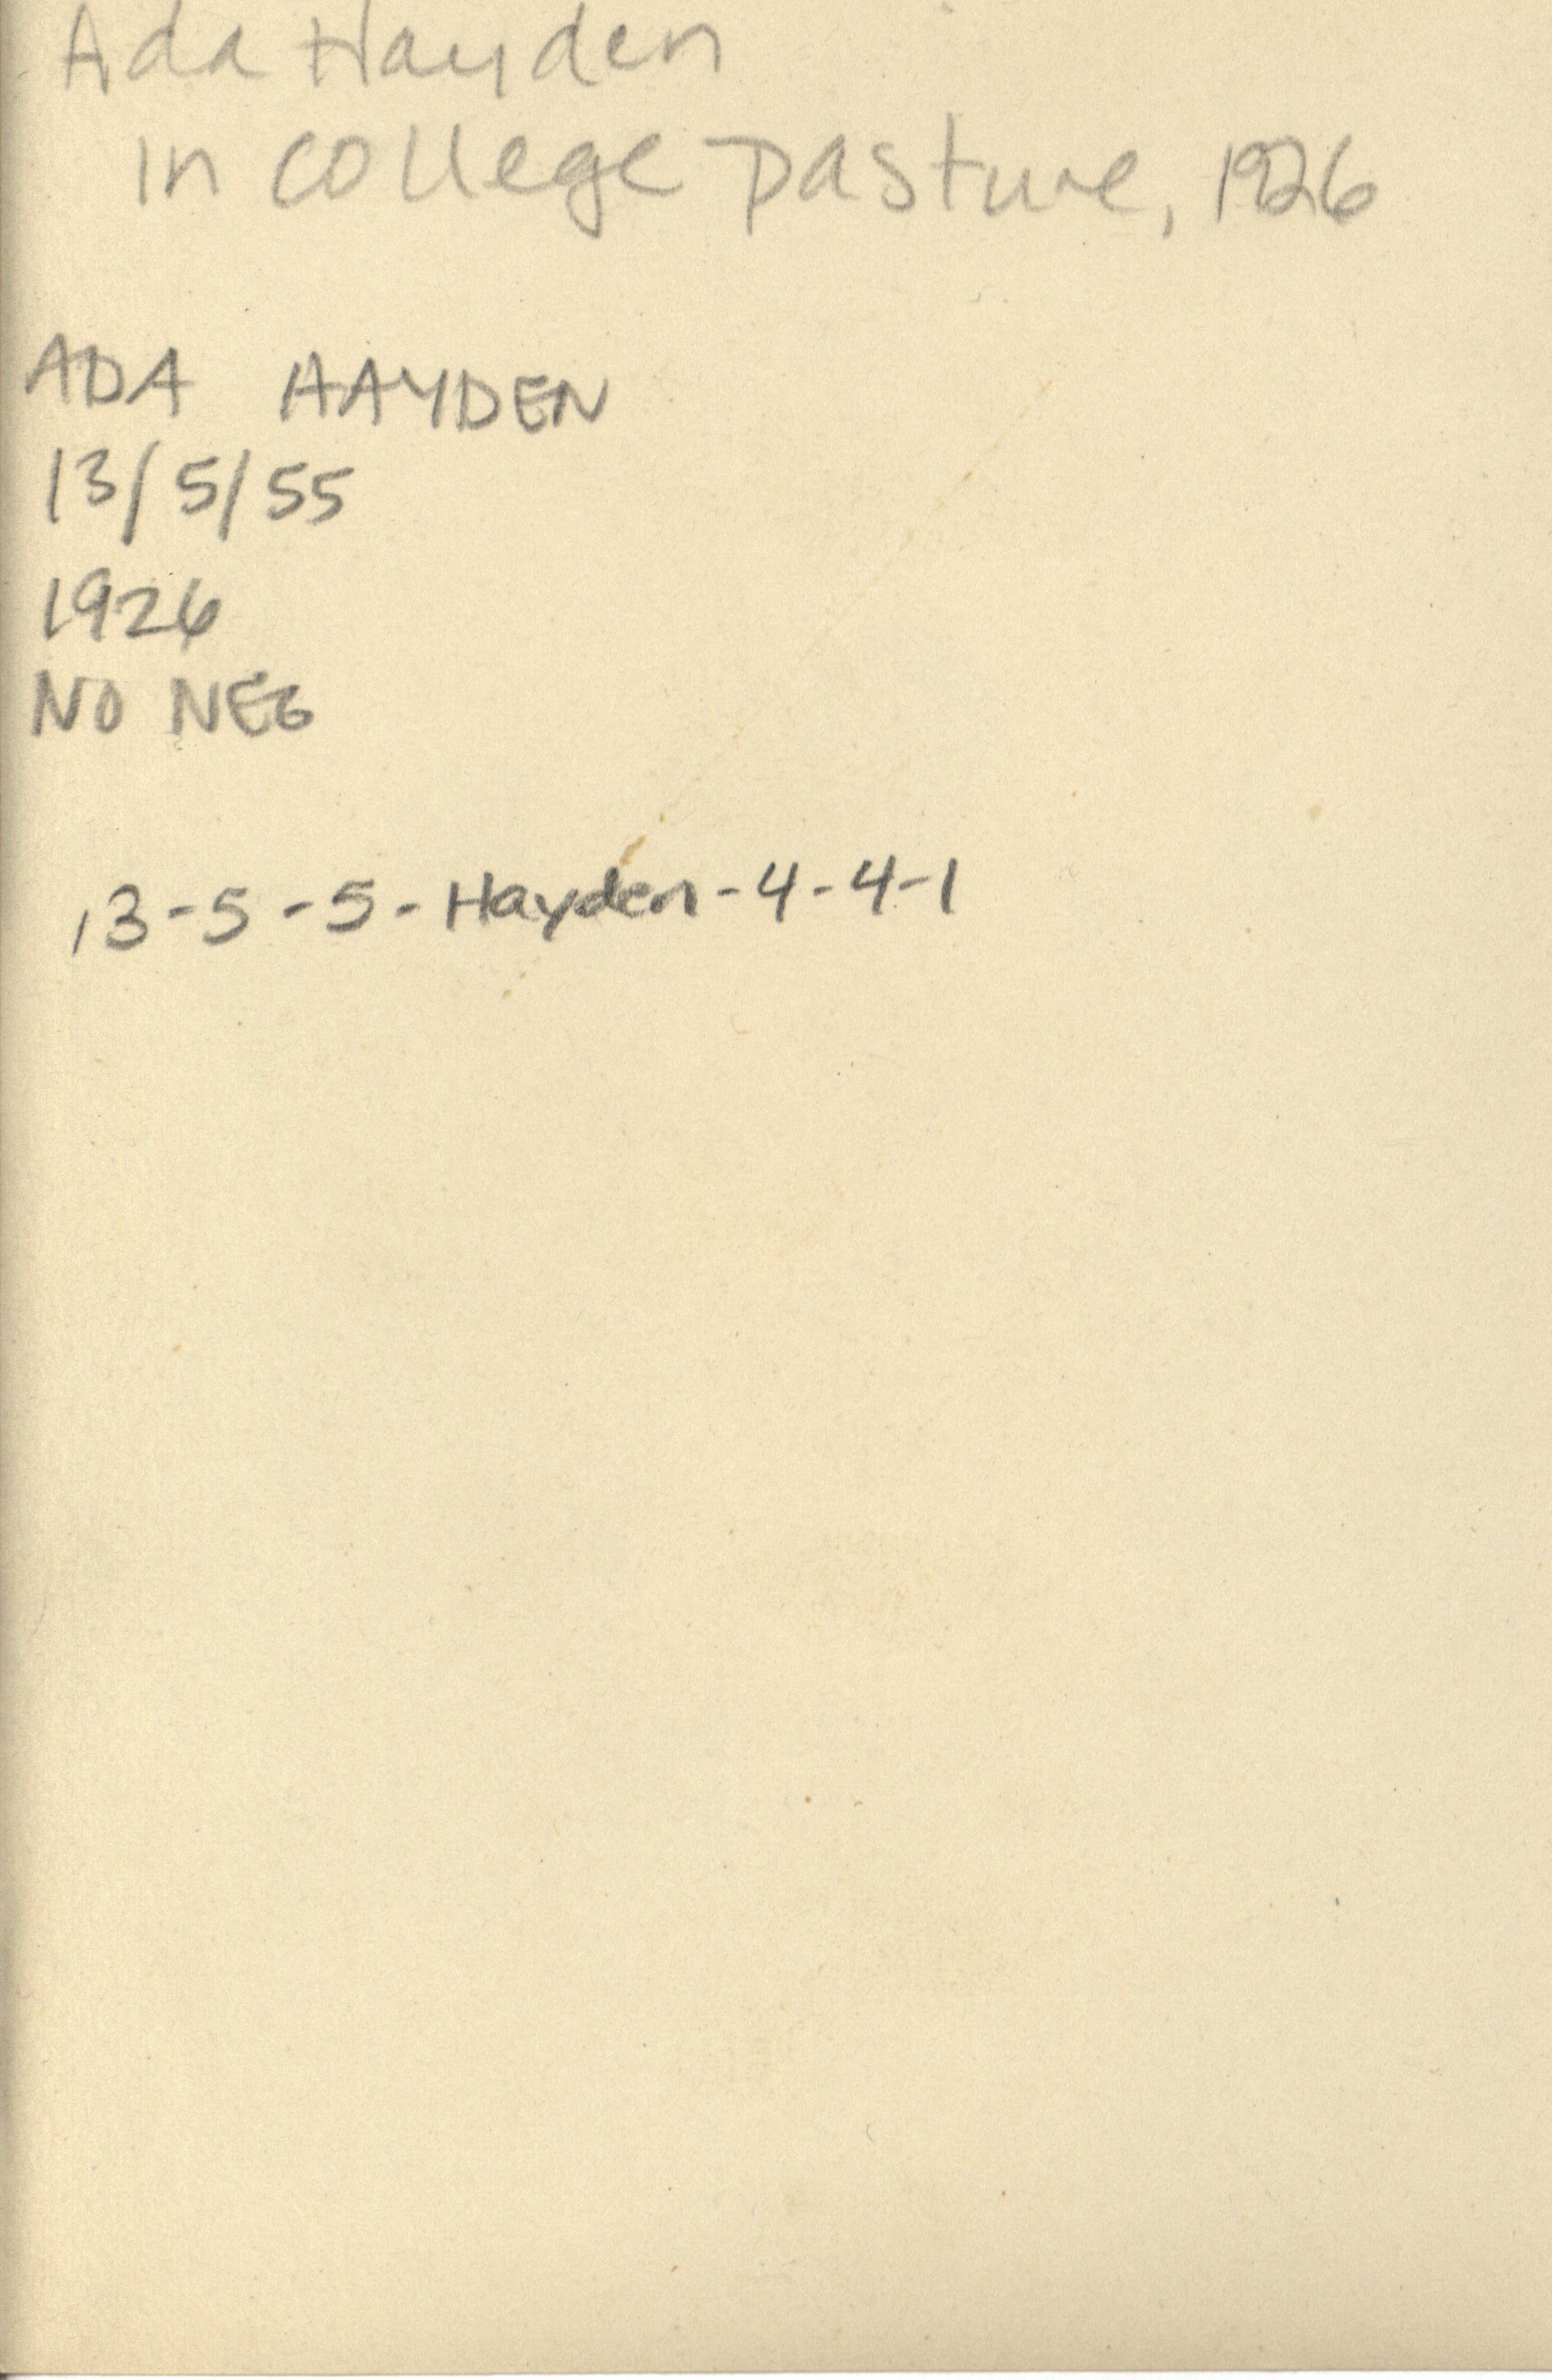 Ada Hayden
in college pasture, 1926
ADA HAYDEN
13/5/55
1926
NO NEG
13-5-5-Hayden-4-4-1